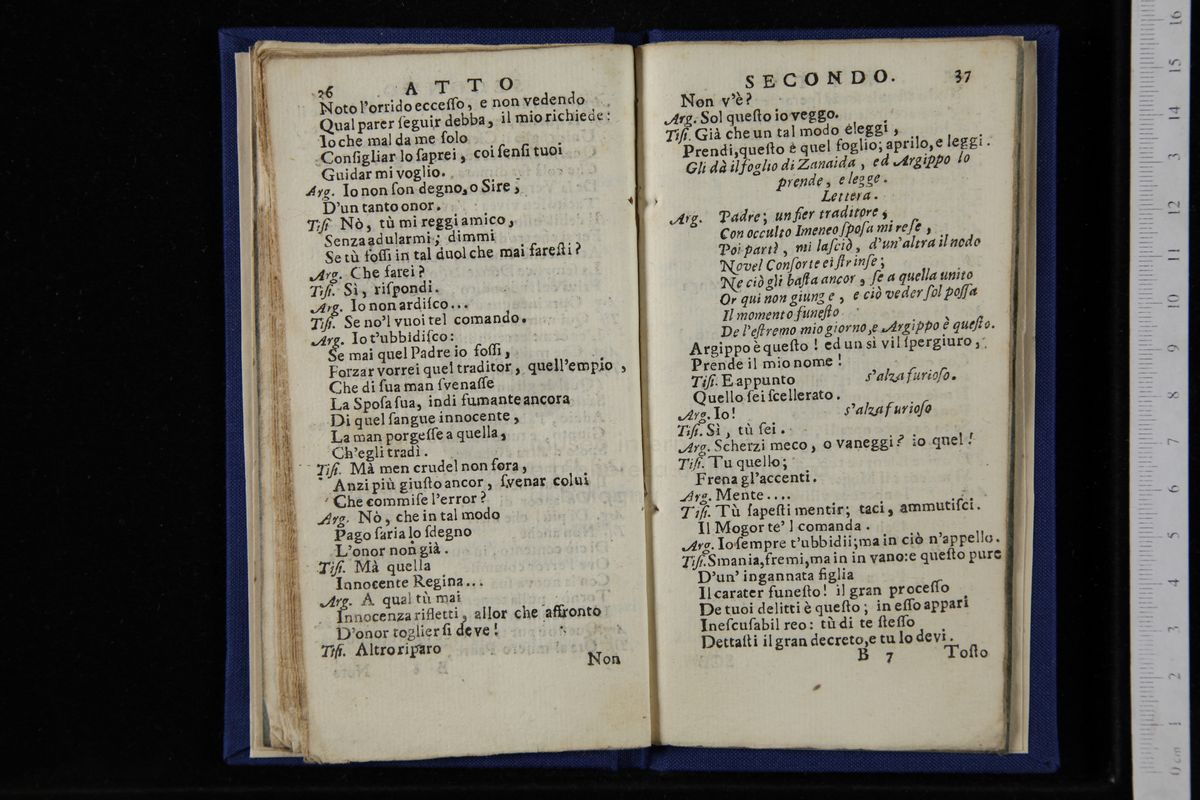 26 ATTO
Noto l'orrido ecceſſo, e non vedendo
Qual parer ſeguir debba, il mio richiede:
Io che mal da me ſolo
Conſigliar lo ſaprei, coi ſenſi tuoi
Guidar mi voglio.
Arg. Io non ſon degno, o Sire,
D'un tanto onor.
Tiſi Nò, tù mi reggi amico,
Senza adularmi; dimmi
Se tù foſſi in tal duol che mai fareſti?
Arg. Che farei?
Tiſi. Sì, riſpondi.
Arg. Io non ardiſco...
Tiſi. Se no'l vuoi tel comando.
Arg. Io t'ubbidiſco:
Se mai quel Padre io foſſi,
Forzar vorrei quel traditor, quell'empio,
Che di ſua man ſvenaſſe
La Spoſa ſua, indi fumante ancora
Di quel ſangue innocente,
La man porgeſſe a quella,
Ch'egli tradì.
Tiſi. Mà men crudel non fora,
Anzi più giuſto ancor, ſvenar colui
Che commiſe l'error?
Arg. Nò, che in tal modo
Pago ſaria lo ſdegno
L'onor non già.
Tiſi. Mà quella
Innocente Regina...
Arg. A qual tù mai
Innocenza rifletti, allor che affronto
D'onor toglier ſi deve!
Tiſi. Altro riparo
Non
SECONDO. 37
Non v'è?
Arg. Sol queſto io veggo.
Tiſi. Già che un tal modo eleggi,
Prendi, queſto è quel foglio; aprilo, e leggi.
Gli dà il foglio di Zanaida, ed Argippo lo
prende, e legge.
Lettera.
Arg. Padre; un fier traditore,
Con occulto Imeneo ſpoſa mi reſe,
Poi partì, mi laſciò, d'un'altra il nodo
Novel Conſorte ei ſtrinſe;
Ne ciò gli baſta ancor, ſe a quella unito
Or qui non giunge, e ciò veder ſol poſſa
Il momento funeſto
De l'eſtremo mio giorno, e Argippo è queſto.
Argippo è queſto! ed un sì vil ſpergiuro,
Prende il mio nome!
Tiſi. E appunto s'alza furioſo.
Quello ſei ſcellerato.
Arg. Io! s'alza furioſo
Tiſi. Sì, tù ſei.
Arg. Scherzi meco, o vaneggi? io quel!
Tiſi. Tu quello;
Frena gl'accenti.
Arg. Mente....
Tiſi. Tù ſapeſti mentir; taci, ammutiſci.
Il Mogor te'l comanda.
Arg. Io ſempre t'ubbidii; ma in ciò n'appello.
Tiſi. Smania, fremi, ma in in vano: e queſto pure
D'un' ingannata figlia
Il carater funeſto! il gran proceſſo
De tuoi delitti è queſto; in eſſo appari
Ineſcuſabil reo: tù di te ſteſſo
Dettaſti il gran decreto, e tu lo devi.
B 7 Toſto
0 cm 1 2 3 4 5 6 7 8 9 10 11 12 13 14 15 16